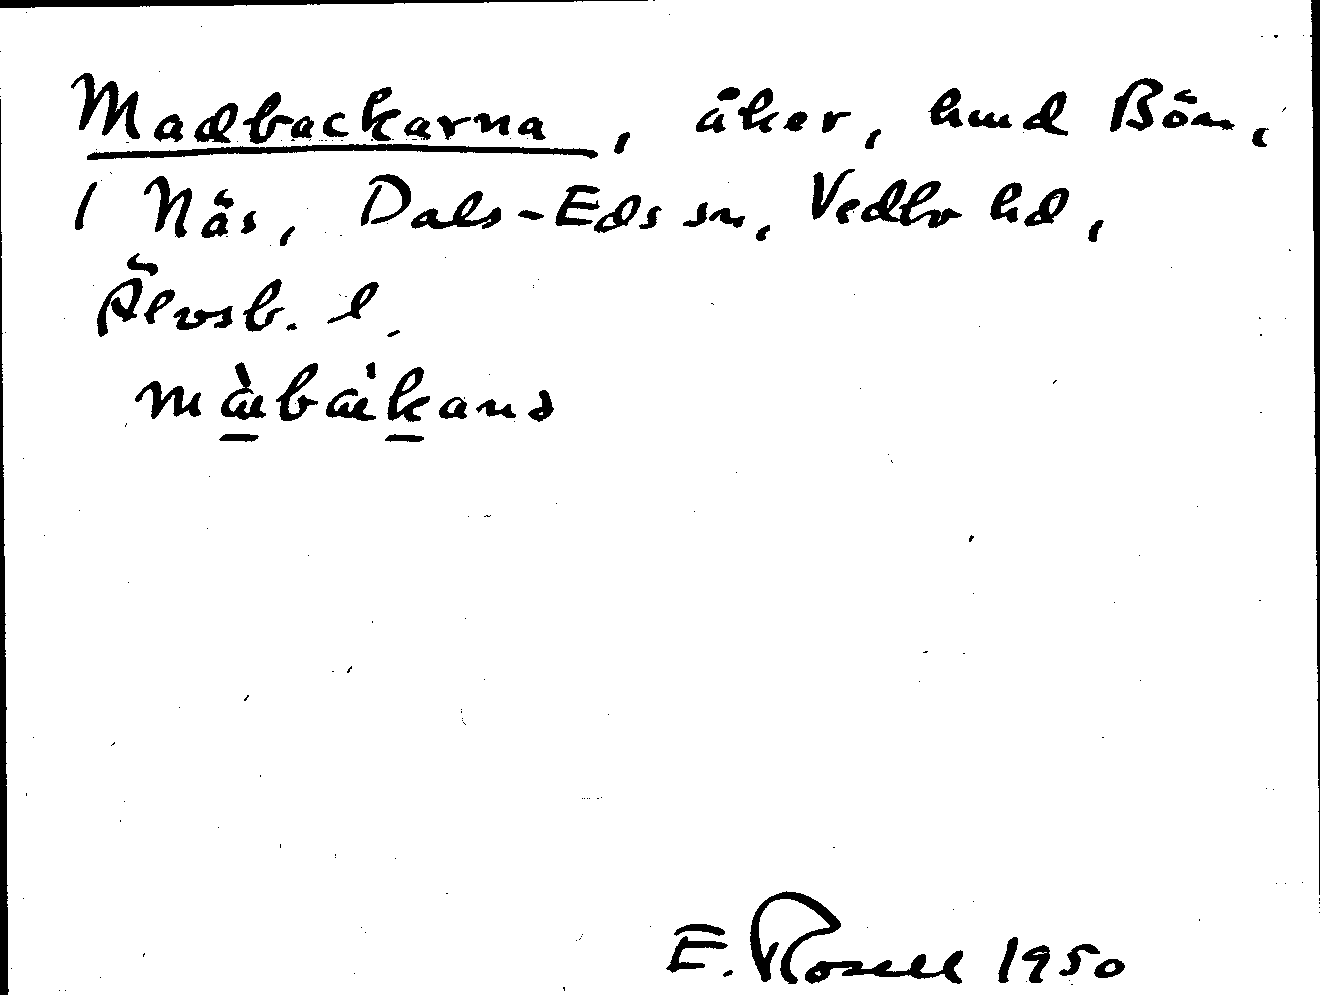 Madbackarna, åker, hmd Bön,
1 Näs, Dals-Eds sn, Vedbo hd,
Älvsb. l.
E. Rosell 1950